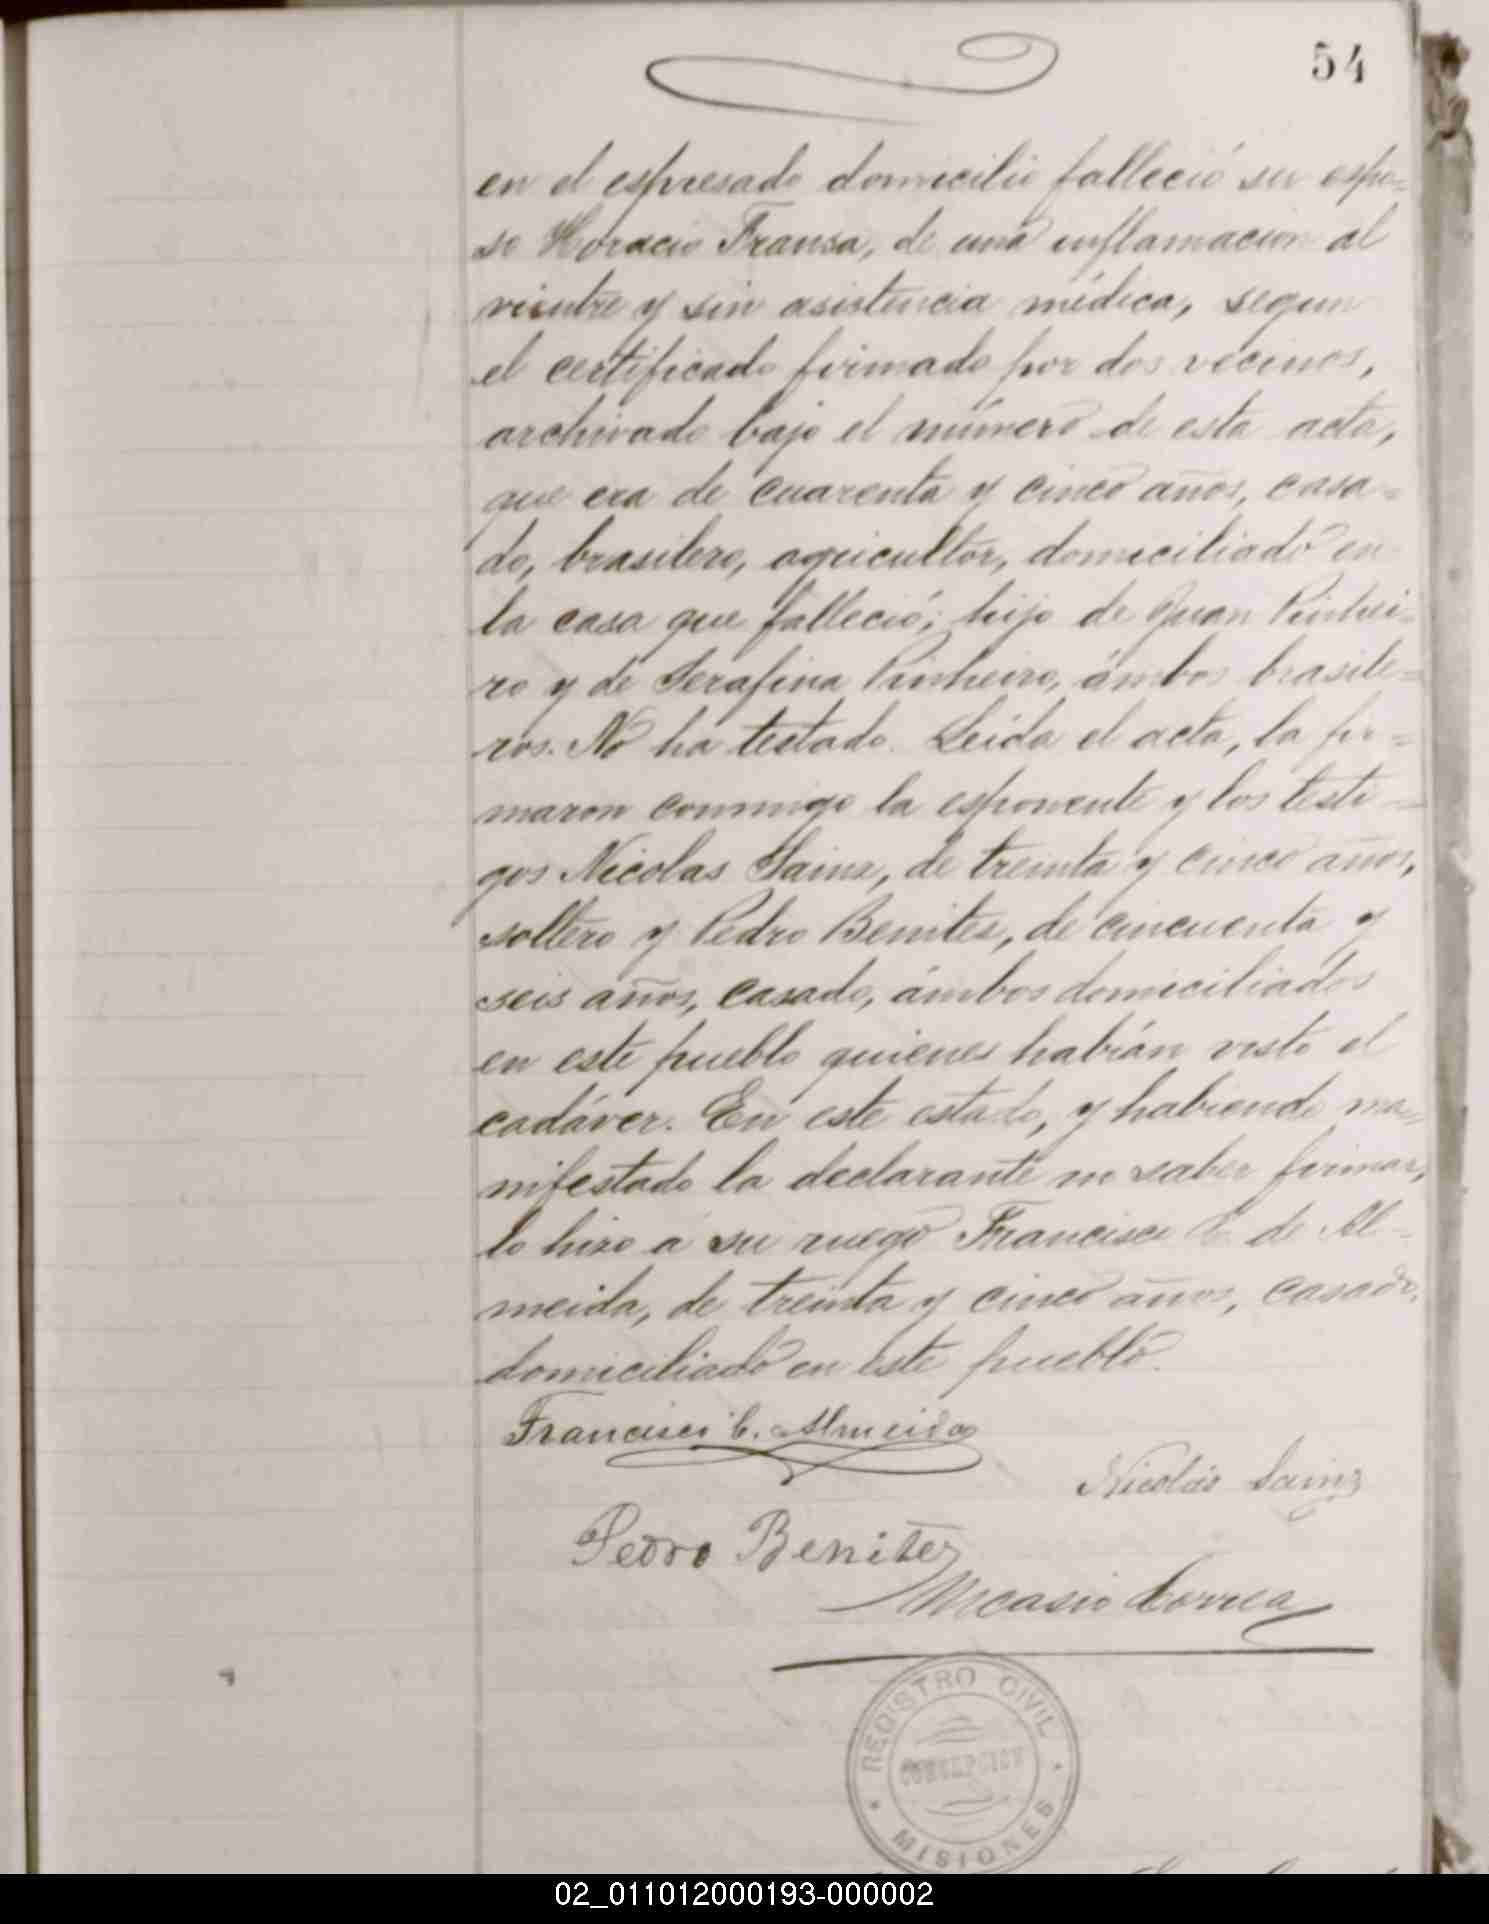 54
en el espresado domicilio falleció su espo=
so Horacio Fransa, de una inflamacion al
vientre y sin asistencia médica, segun
el certificado firmado por dos vecinos,
archivado bajo el número de esta acta,
que era de cuarenta y cinco años, casa=
do, brasilero, agricultor, domiciliado en
la casa que falleció; hijo de Juan Pinhei=
ro y de Serafina Pinheiro, ámbos brasile=
ros. No ha testado. Leida el acta, la fir=
maron conmigo la esponente y los testi=
gos Nicolas Sainz, de treinta y cinco años,
soltero y Pedro Benites, de cincuenta y
seis años, casado, ámbos domiciliados
en este pueblo quienes habián visto el
cadáver. En este estado, y habiendo ma=
nifestado la declarante no saber firmar,
lo hizo á su ruego Francisco C. de Al=
meida, de treinta y cinco años, casado,
domiciliado en este pueblo.
Francisco C. Almeida
Nicolás Sainz
Pedro Benitez
Nicasio Correa
REGISTRO CIVIL
CONCEPCION
MISIONES
02_011012000193-000002